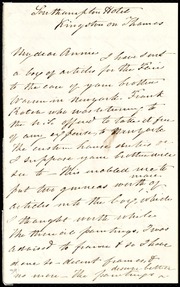 Southampton Hotel
Kingston on Thames
My dear Annie
I have sent
a box of articles for the Fair
to the care of your brother
Warren in New York. Frank
was
offered to take it free
of any expense, to New York.
The custom house duties
I suppose your brother will see
to - The enclosed
put two guineas worth of
articles into the box, which
I thought worth while
The three oil paintings, I was
advised to frame & so I have
done so - decent frames &
no more - The paintings